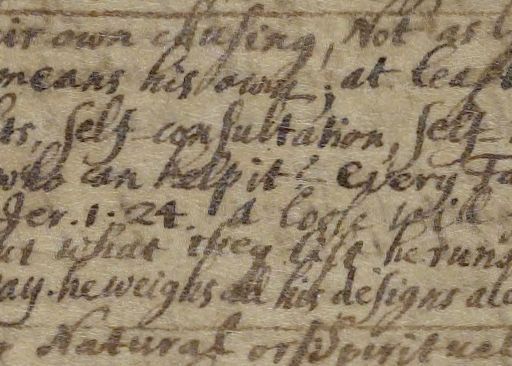 own chusing, Not as
means his own; at least
self consultation, self
who can help it? Every
Jer. 1. 24. A
what they list he runs
he weighs all his designs
Natural or Spiritual